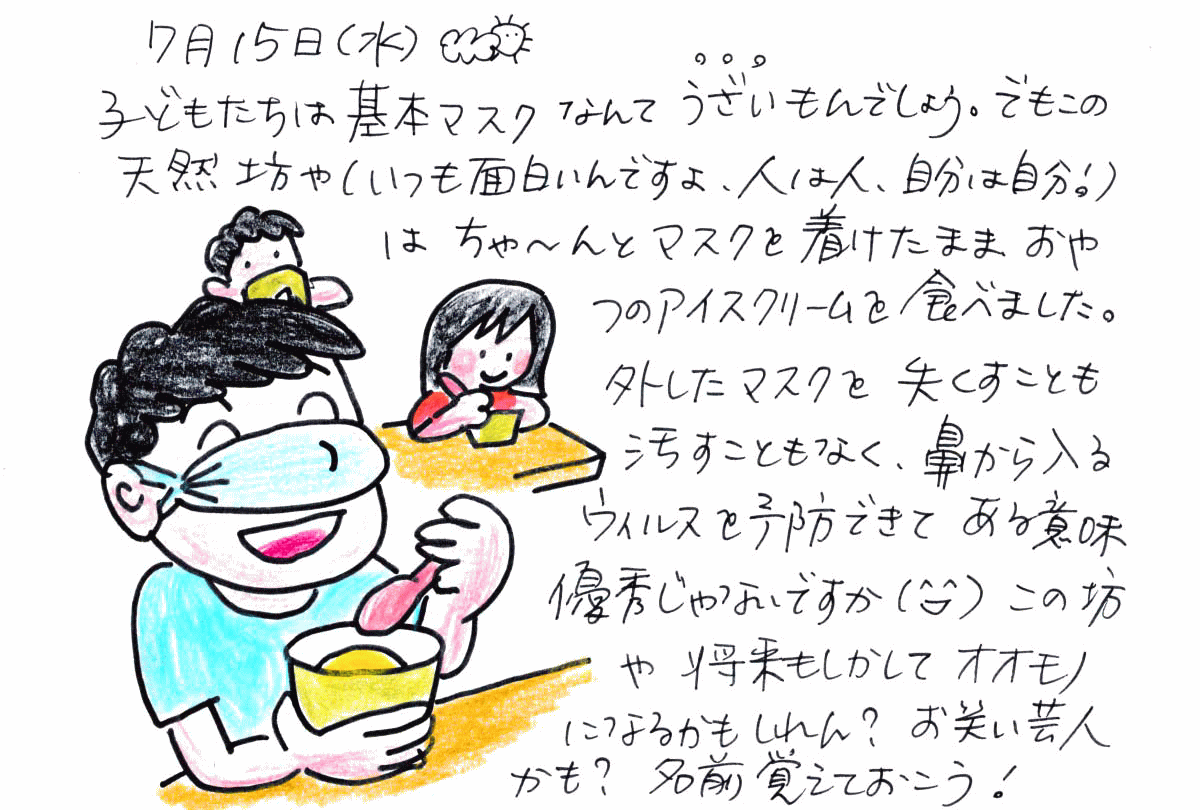 7月15日(水)
子どもたちは基本マスクなんてうざいもんでしょう。でもこの
天然坊や(いつも面白いんですよ、人は人、自分は自分!)
はちゃ〜んとマスクを着けたままおや
つのアイスクリームを食べました。
外したマスクを失くすことも
汚すこともなく、鼻から入る
ウィルスを予防できてある意味
優秀じゃないですか(^^)この坊
や将来もしかしてオオモノ
になるかもしれん?お笑い芸人
かも?名前覚えておこう!